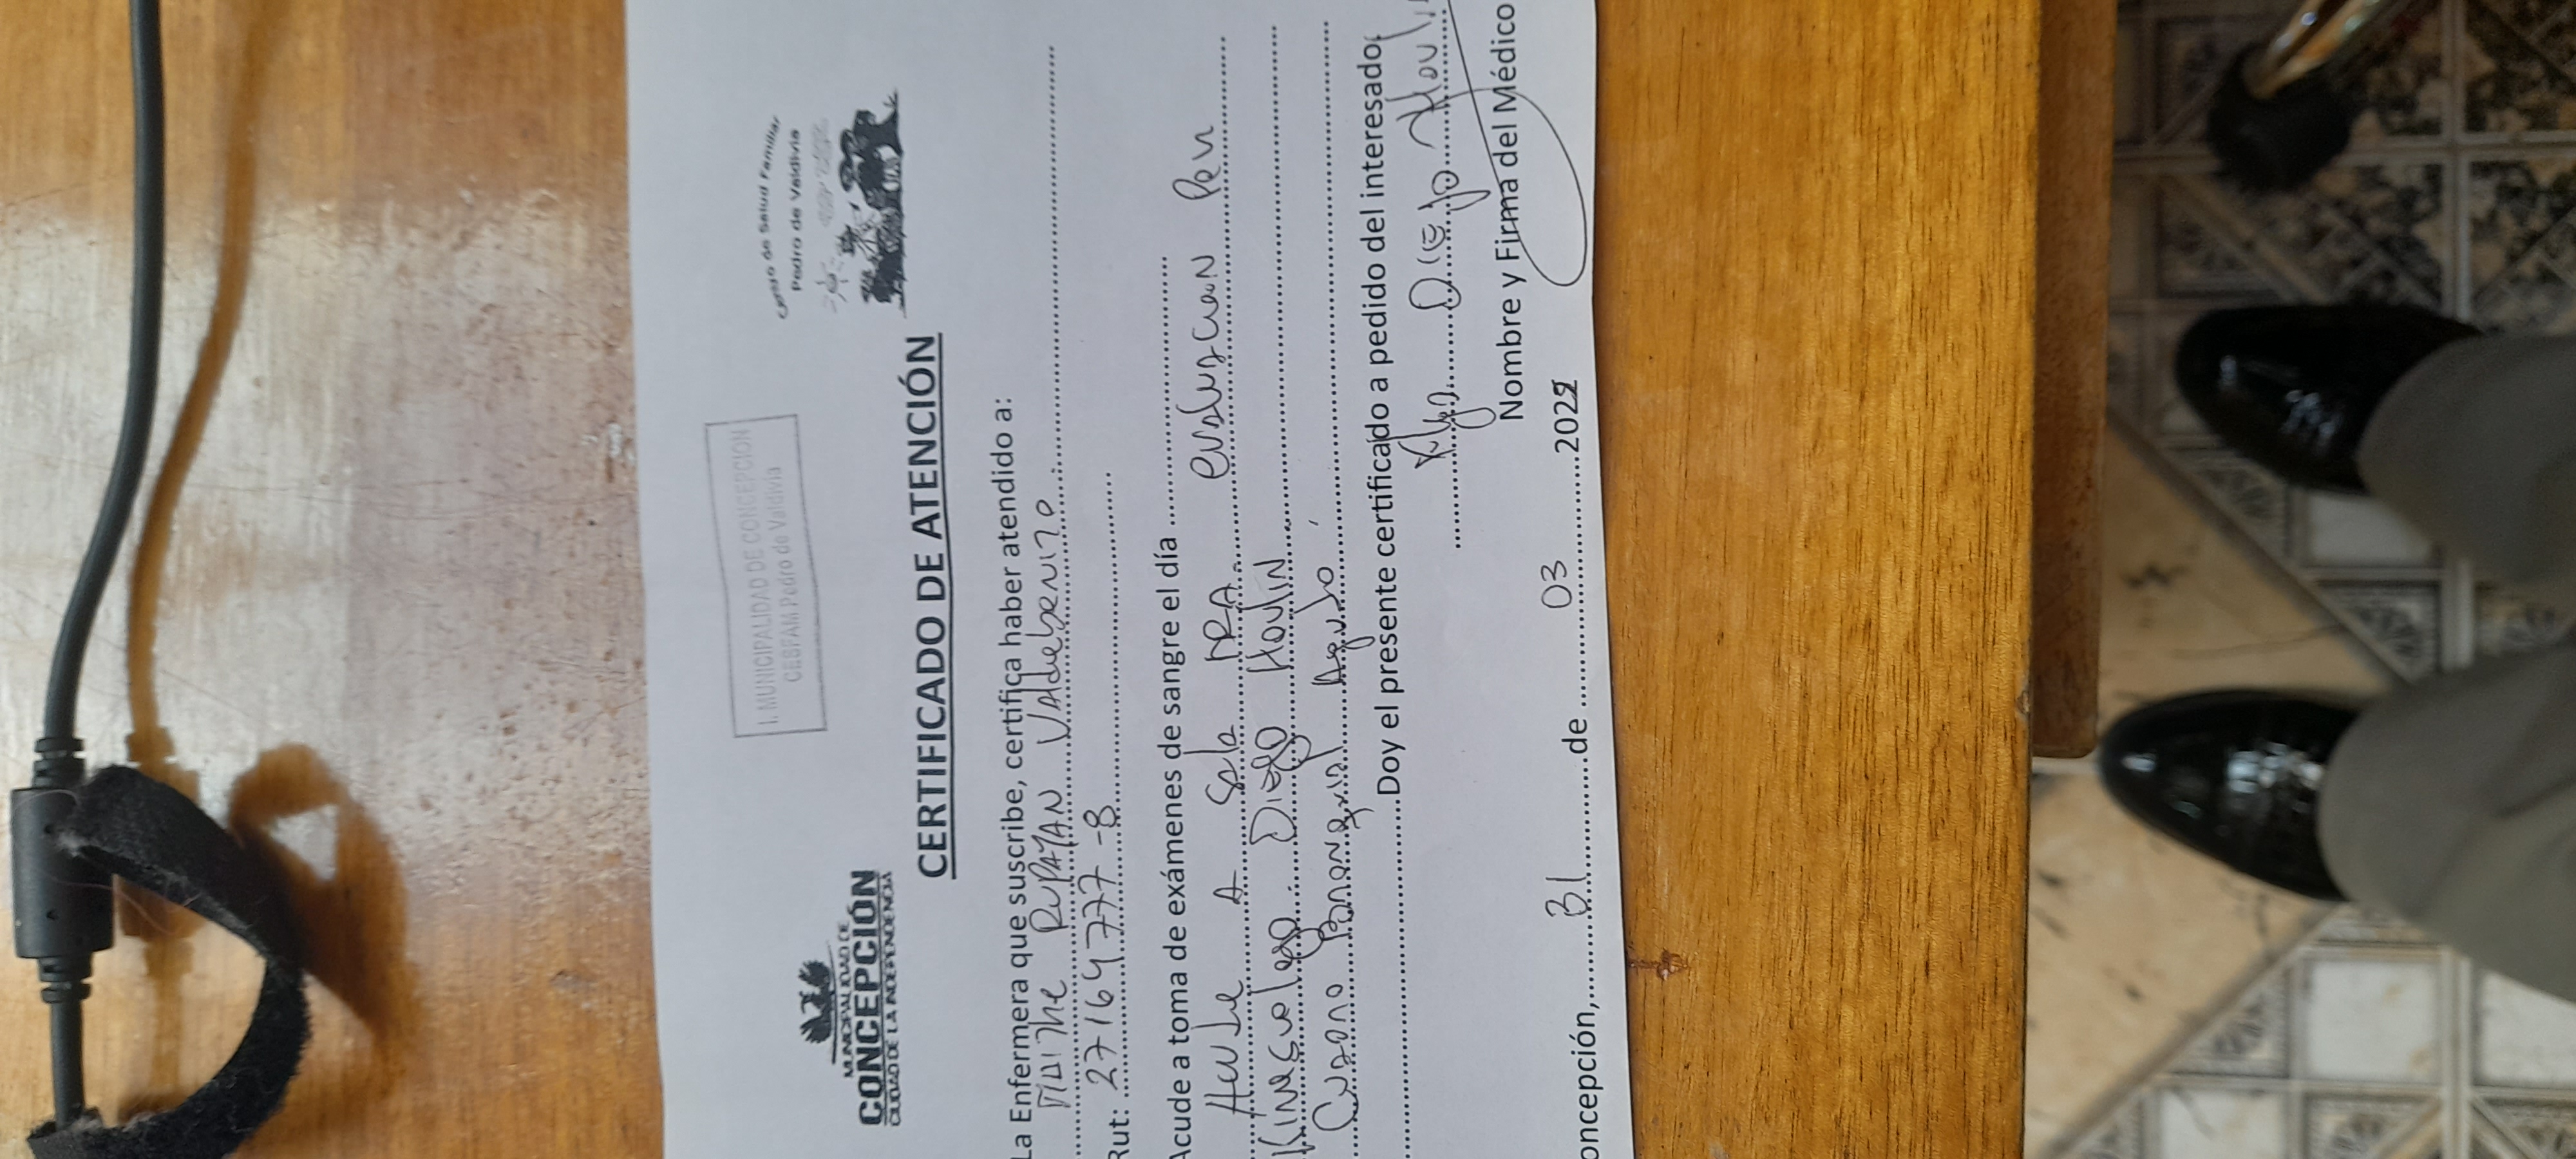 I. MUNICIPALIDAD DE CONCEPCION
CESFAM Pedro de Valdivia
Centro de Salud Familiar
Pedro de Valdivia
MUNICIPALIDAD DE
CONCEPCIÓN
CIUDAD DE LA INDEPENDENCIA
CERTIFICADO DE ATENCIÓN
La Enfermera que suscribe, certifica haber atendido a:
RUPAYAN VALDEBENITO
Rut: 27164777-8
Acude a toma de exámenes de sangre el día
Acude A Sala IRA. evaluacion Por
Kinesiologo. Diego Moulin
Cuadro Bronquial Agudo.
Doy el presente certificado a pedido del interesado,
Klgo. Diego Moulin
Nombre y Firma del Médico
oncepción, 31 de 03 202